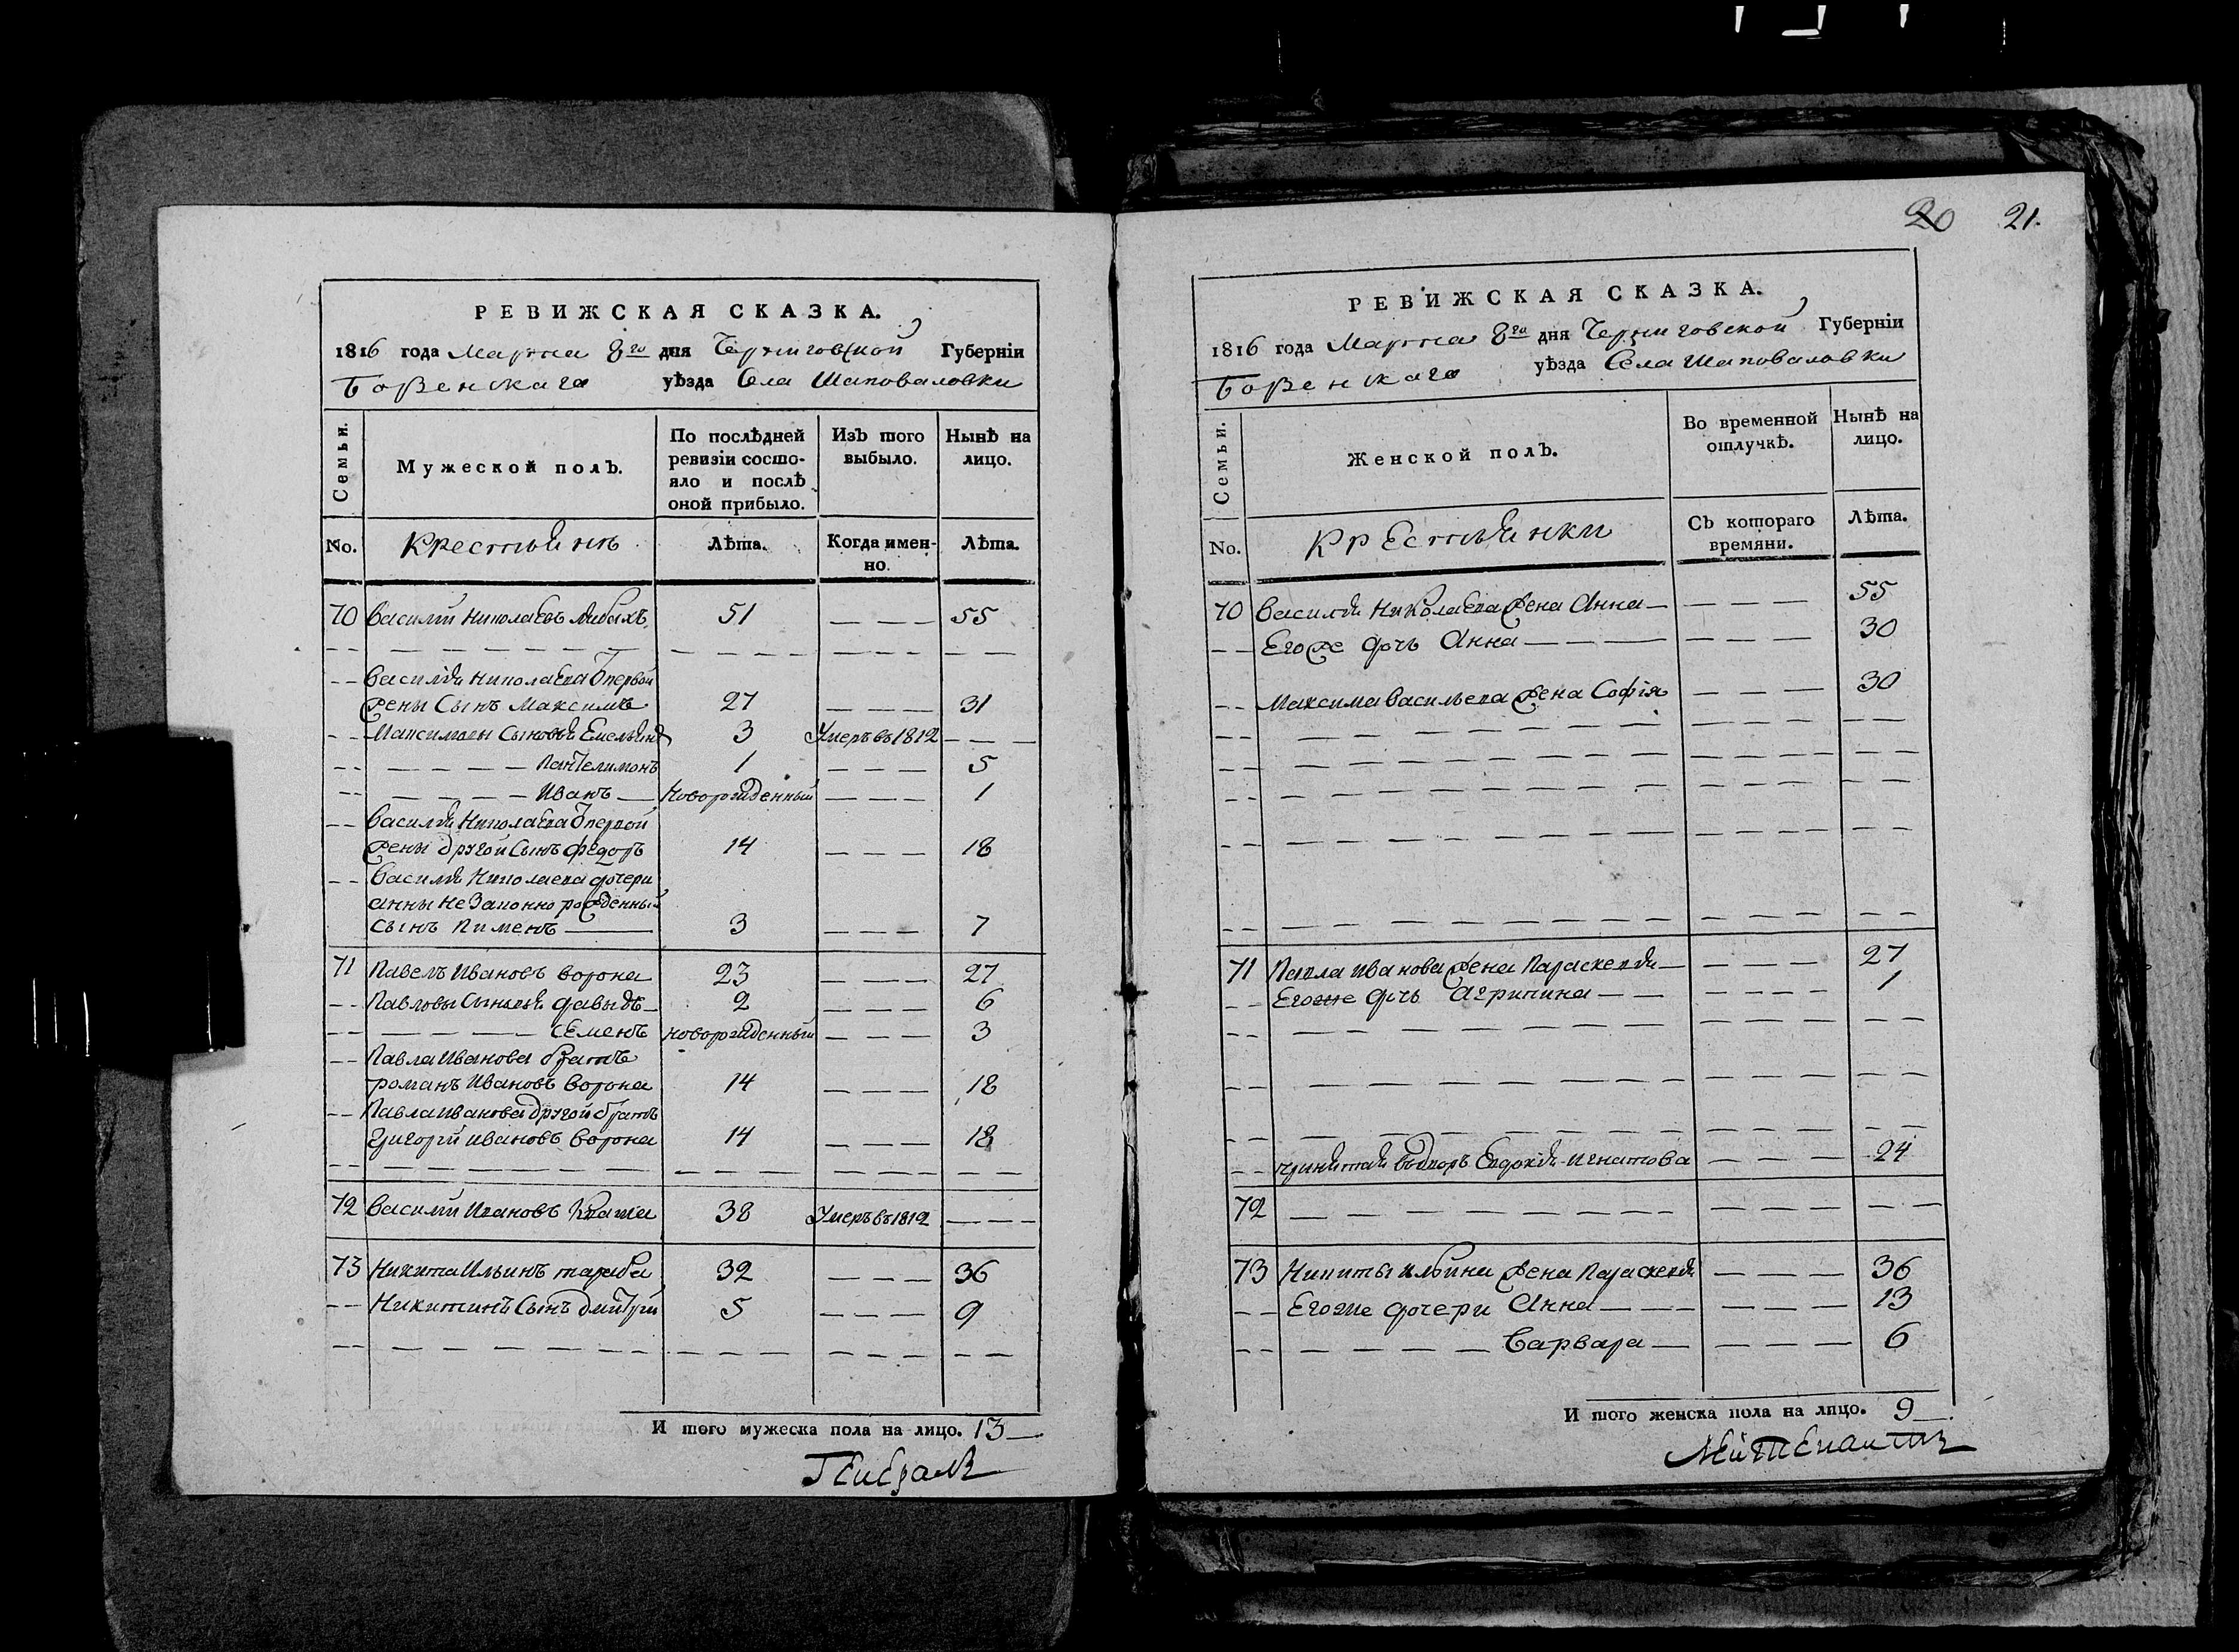 РЕВИЖСКАЯ СКАЗКА.
1816 года Марта 8го дня Черниговской Губерніи
Борзенскаго уѣзда Села Шаповаловки
Семьи.
Мужеской полъ.
По послѣдней ревизіи состо-
яло и послѣ
оной прибыло.
Изъ того
выбыло.
Нынѣ на
лицо.
No.
Крестьянъ
Лѣта.
Когда имен-
но.
Лѣта.
70 Василій Николаевъ 51 — — — 55
Василія Николаева отпервой
жены Сынъ Максимъ 27 — — — 31
Максимовы Сыновья Емельянъ 3 Умеръ въ 1812 — — —
— — — — Пантелимонъ 1 — — — 5
— — — — Иванъ — Новорожденный — — — 1
Василія Николаева отпервой
жены другой Сынъ федоръ 14 — — — 18
Василія Николаева дочери
анны незаконно рожденный
сынъ Пименъ — 3 — — — 7
71 Павелъ Ивановъ ворона 23 — — — 27
Павловы Сыновья давыдъ — 2 — — — 6
— — — — Семенъ новорожденный — — — 3
Павла Иванова братъ
романъ Ивановъ Ворона 14 — — — 18
Павла иванова другой братъ
Григорій ивановъ Ворона 14 — — — 18
72 Василій Ивановъ 38 Умеръ въ 1812 — — —
73 Никита Ильинъ 32 — — — 36
Никитинъ Сынъ дмитрій 5 — — — 9
И того мужеска пола на лицо. 13 —
20 21.
РЕВИЖСКАЯ СКАЗКА.
1816 года Марта 8го дня Черниговской Губерніи
Борзенскаго уѣзда Села Шаповаловки
Семьи.
Женской полъ.
Во временной
отлучкѣ.
Нынѣ на
лицо.
No.
Крестьянки
Съ котораго
времяни.
Лѣта.
70 Василія Николаева жена Анна — — — — 55
Егоже дочь Анна — — — — 30
Максима васильева жена Софія — — — 30
71 Павла иванова жена Параскевія — — — — 27
Егоже дочь Агрипина — — — — — — 1
принятая въ дворъ Евдокія Игнатова — — — 24
72 — — — —
73 Никиты ильина жена Параскевія — — — 36
Егоже дочери Анна — — — — — — 13
— — — — Варвара — — — — 6
И того женска пола на лицо. 9 —.